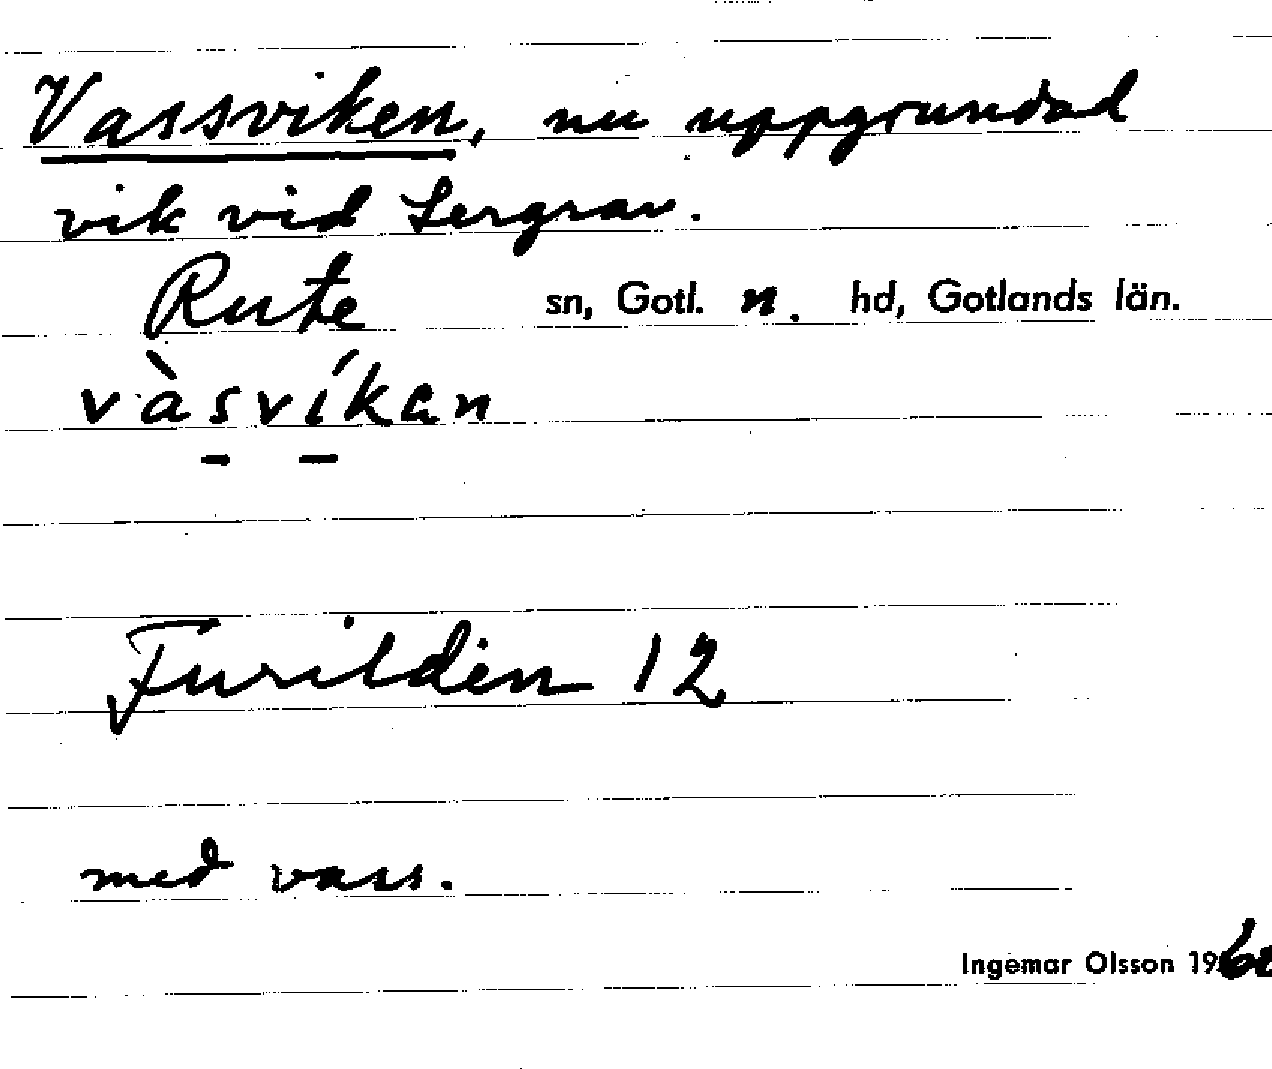 Vassviken, nu uppgrundad
vik vid Lergrav.
Rute sn, Gotl. n. hd, Gotlands län.
vàsvíkan
Furilden 12
med vass.
Ingemar Olsson 19